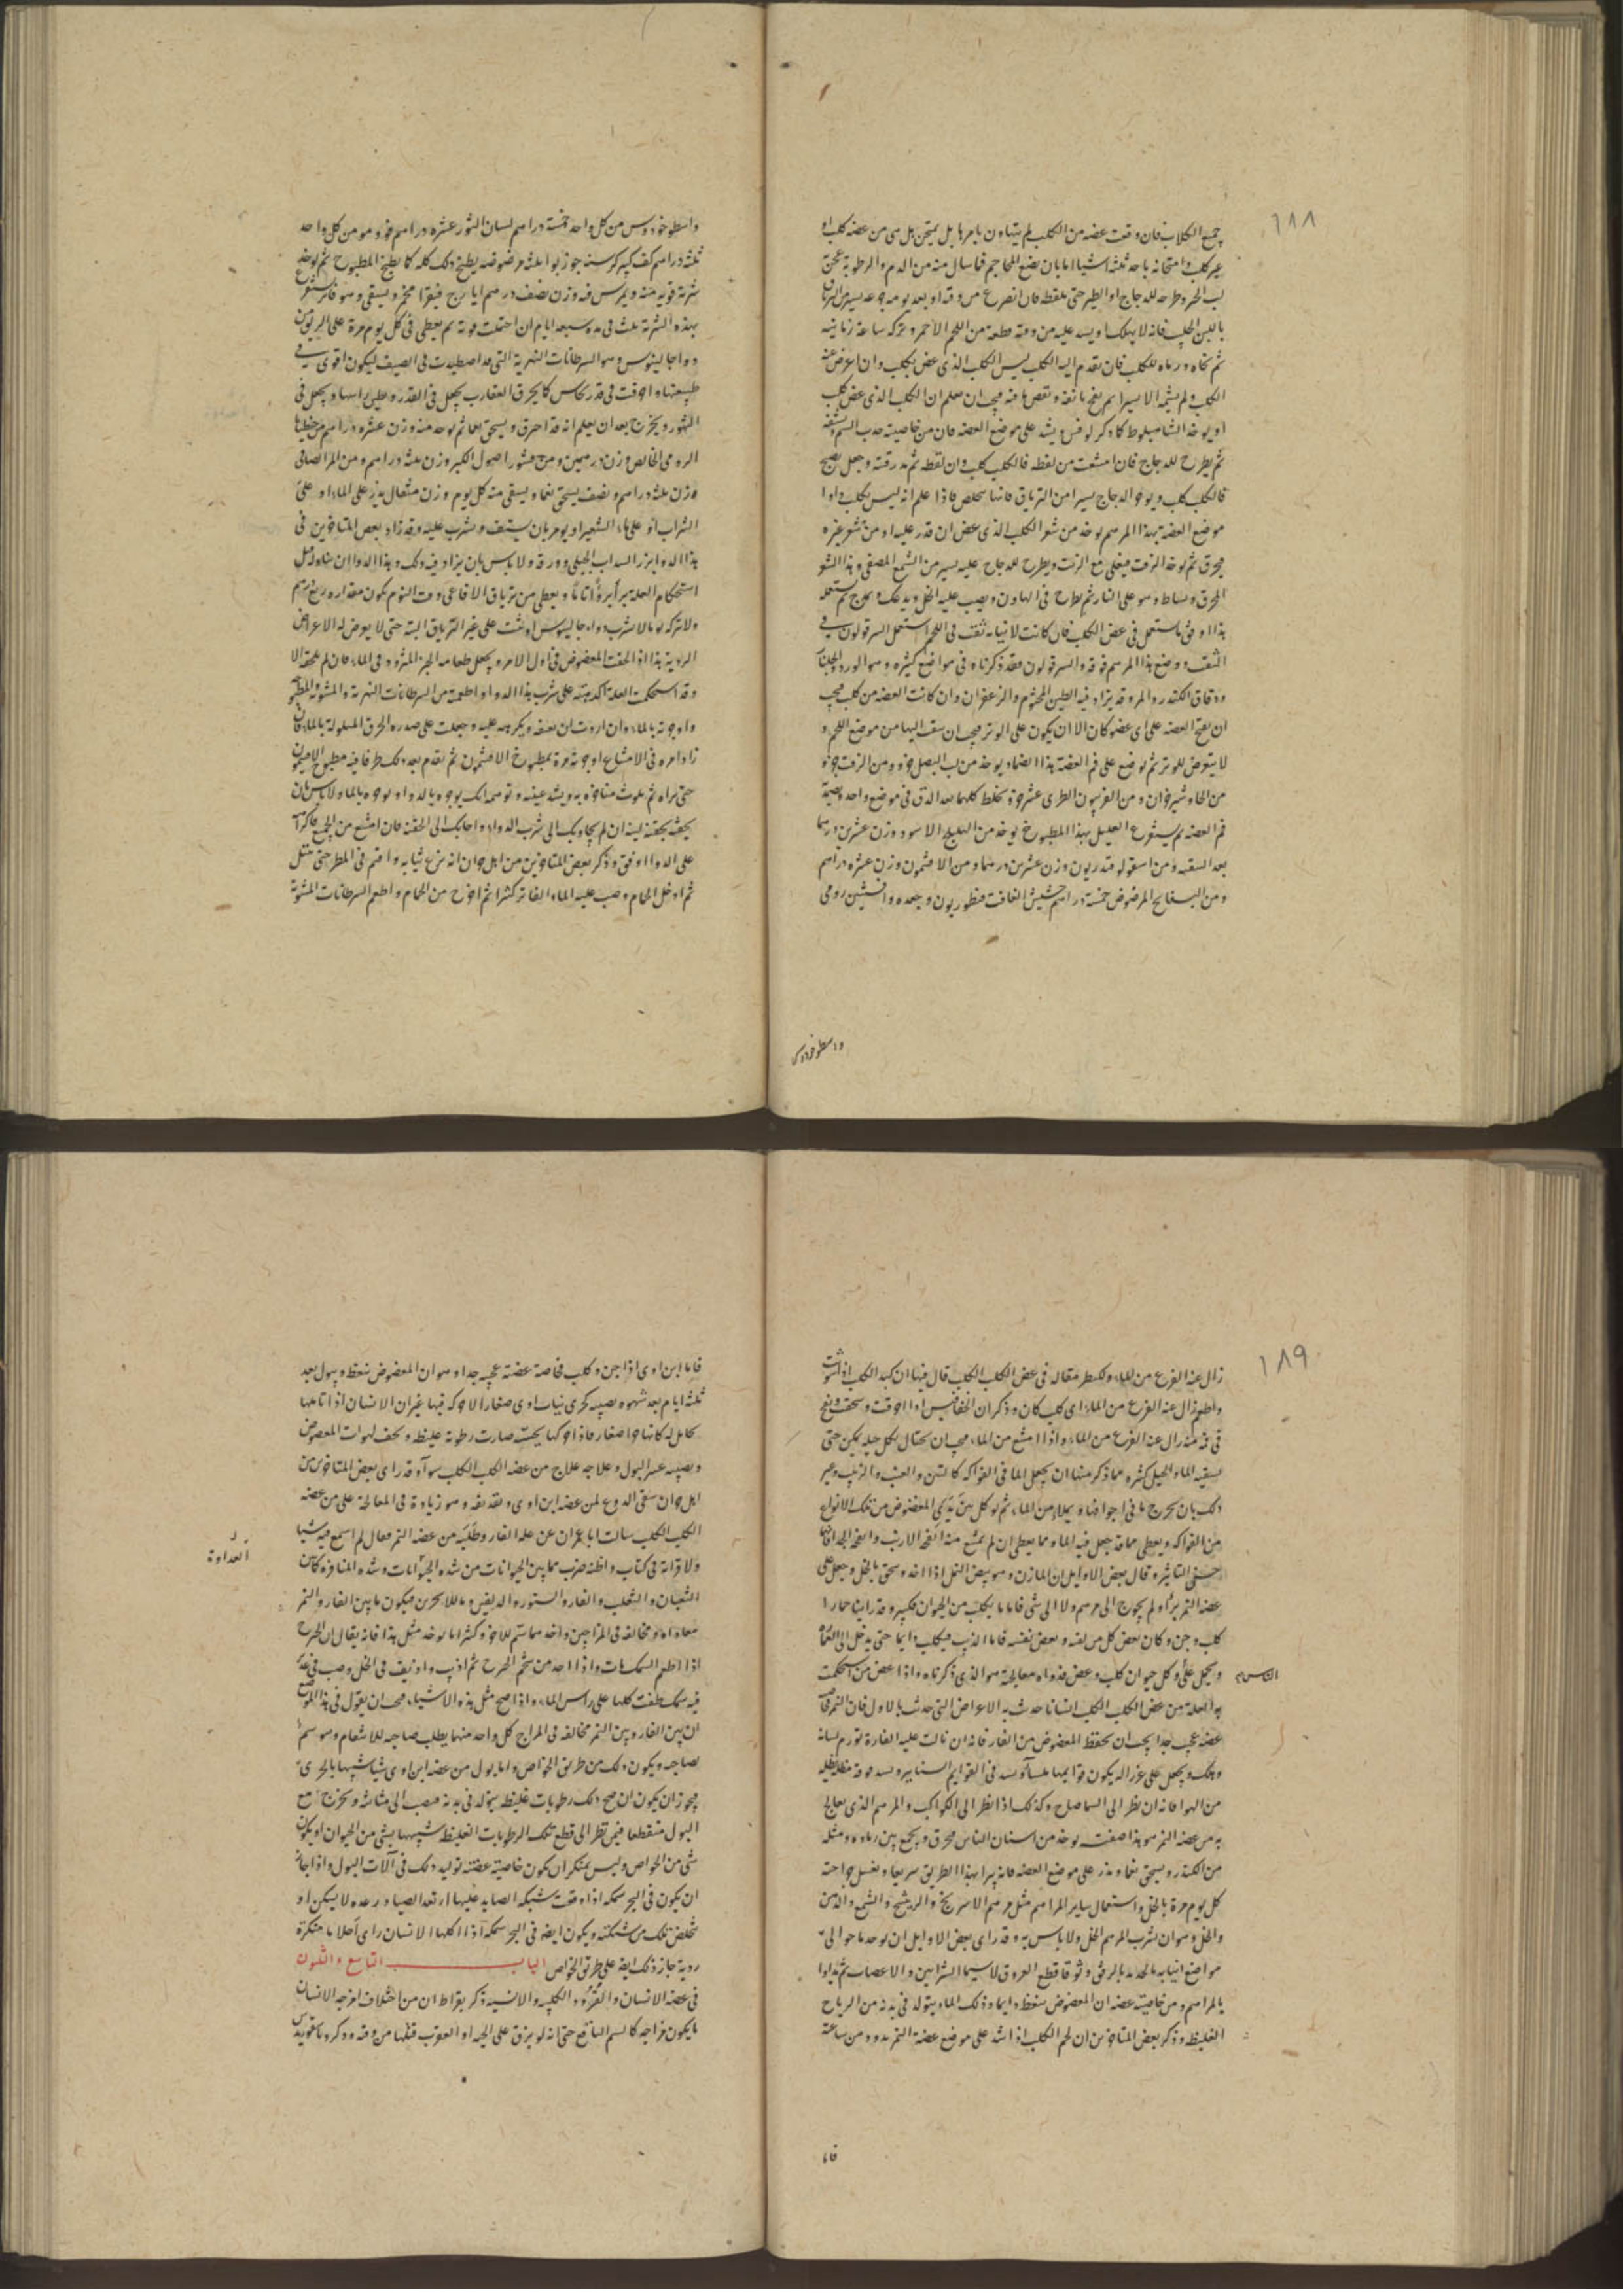 ١٨٨
جميع الكلاب فان وقعت عضه من الكلب لم يتهاون بامرها بل يمتحن هل هي من عضه كلب او
غير كلب وامتحانه باحد ثلثه اشيا اما بان يضع المحاجم فما سال منه من الدم والرطوبة عجن
لب الخبز وطرحه للدجاج او الطير حتى يلقط فان انصرع من وقته او بعد يومه وعد يسير الترياق
باللبن الحليب فانه لا يهلك او يسد عليه من وقته قطعة من اللحم الاحمر ويتركه ساعة زمانيه
ثم نحاه ورماه للكلب فان تقدم اليه الكلب ليس الكلب الذي عض بكلب وان اعرض عنه
الكلب ولم يشمه الا يسيرا ثم نفخ بانفه ونغص ها منه فيجب ان تعلم ان الكلب الذي عض كلب
او يوخذ الشاهبلوط كما ذكر لوفس ويشد على موضع العضه فان من خاصيته جذب السم
ثم يطرح للدجاج فان امتنعت من لقطه فالكلب كلب وان لقطه ثم ذرقته وجعل يصيح
فالكلب كلب ويوجر الدجاج يسيرا من الترياق فانها تتخلص فاذا علم انه ليس بكلب داوا
موضع العضه بهذا المرهم يوخذ من شعر الكلب الذي عض ان قدر عليه او من شعر غيره
فيحرق ثم يوخذ الزفت فيغلى مع الزيت ويطرح عليه يسير من الشمع المصفى وهذا الشعر
المحرق ويساط وهو على النار ثم يطرح في الهاون ويصب عليه الخل ويدعك ويخرج ثم يستعمله
هذا اوفق ما يستعمل في عض الكلب فان كانت لانيابه ثقب في اللحم استعمل السرقولون في
الثقب ووضع هذا المرهم فوقه والسرقولون فقد ذكرناه في مواضع كثيره وهو الورد والجلنار
ودقاق الكندر والمر وقد يزاد فيه الطين المختوم والزعفران وان كانت العضه من كلب فيجب
ان يفتح العضه على اى عضو كان الا ان يكون على الوتر فيجب ان يثقب اليها من موضع اللحم و
لا يتعرض للوتر ثم يوضع على فم العضة هذا الضماد يوخذ من لب البصل جزو ومن الزفت جزو
من الجاوشير جزان ومن الفربيون الطرى عشر جزو تخلط كلها بعد الدق في موضع واحد ويضمد
فم العضه ثم يستفرغ العليل بهذا المطبوخ يوخذ من الهليلج الاسود وزن عشرين درهما
بعد التنقيه ومن اسقولوقندريون وزن عشرين درهما ومن الافتيمون وزن عشره دراهم
ومن البسفايج المرضوض خمسة دراهم حشيش الغافت قنطوريون وجعده وافسنتين رومى
واسطوخودوس
واسطوخودوس من كل واحد خمسة دراهم لسان الثور عشره دراهم فو ومو من كل واحد
ثلثه دراهم كف كبير كرسنه جوز بوا ثلثه مرضوضه يطبخ ذلك كله كما يطبخ المطبوخ ثم يوخذ
شربة قويه منه ويمرس فيه وزن نصف درهم ايارج فيقرا مخمر ويسقى وهو فاتر يستفرغ
بهذه الشربة ثلث في مده سبعه ايام ان احتملت قوته ثم يعطى في كل يوم مرة على الريق من
دوا جالينوس وهو السرطانات النهرية التي قد اصطيدت في الصيف ليكون اقوى في
طبيعتها واحرقت في قدر نحاس كما يحرق العقارب يجعل في القدر وطين راسها ويجعل في
التنور ويخرج بعد ان يعلم انه قد احرق ويسحق نعما ثم يوخذ منه وزن عشره دراهم من جنطيانا
الرومى الخالص وزن درهمين ومن قشور اصول الكبر وزن ثلثه دراهم ومن المر الصافى
وزن ثلثه دراهم ونصف يسحق نعما ويسقى منه كل يوم وزن مثقال يذر على الماء او على
الشراب او على ماء الشعير او يومر بان يستف ويشرب عليه وقد زاد بعض المتاخرين في
هذا الدوا بزر السداب الجبلى وورقه ولا باس بان يزاد فيه ذلك وهذا الدوا ان تناوله قبل
استحكام العلة يبرأ برؤا تاما ويعطى من ترياق الافاعى وقت النوم يكون مقداره ربع درهم
ولا تتركه يوما لا يشرب دواء جالينوس او يثبت على غير الترياق البته حتى لا يعرض له الاعراض
الردية هذا اذا لحقت المعضوض في اول الامر ويجعل طعامه الخبز المثرود في الماء فان لم تلحقه الا
وقد استحكمت العلة اكدهته على شرب هذا الدوا او اطعمته من السرطانات النهرية والمشوية والمطبوخه
واوجرته بالماء وان اردت ان تعنف ويكرهه عليه وجعلت على صدره الخرق المبلولة بالماء فان
زاد امره في الامتناع اوجرته مرة بمطبوخ الافتيمون ثم تقدم بعد ذلك طرفا فيه مطبوخ الافتيمون
حتى يراه ثم تلوث مناخره به ويشد عينيه وتوهمه انك يوجره بالدوا او يوجره بالماء ولا باس بان
يحقنه بحقنة لينه ان لم يجاوبك الى شرب الدواء واجابك الى الحقنه فان امتنع من الجميع فاكرهه
على الدوا الاوفق وذكر بعض المتاخرين من اهل حران انه نزع ثيابه واقيم في المطر حتى ابتل
ثم ادخل الحمام وصب عليه الماء الفاتر كثيرا ثم اخرج من الحمام واطعم السرطانات المشوية
١٨٩
زال عنه الفزع من الماء ولكسطر مقاله في عض الكلب الكلب قال فيها ان كبد الكلب اذا شويت
واطعم زال عنه الفزع من الماء اى كلب كان وذكر ان الخنافيس اذا احرقت وسحقت ونفخ
في فمه منه زال عنه الفزع من الماء واذا امتنع من الماء فيجب ان يحتال بكل حيله يمكن حتى
يسقيه الماء والحيل كثيره مما ذكر منها ان يجعل الما في الفواكه كالتين والعنب والزبيب وغير
ذلك بان يخرج ما في اجوافها ويملاء من الماء ثم يوكل بين يدى المعضوض من تلك الانواع
من الفواكه ويعطى مما قد جعل فيه الماء ومما يعطى ان لم يمتنع منه انفحه الارنب وانفحه الجدا فانها
حسنه التاثير وقال بعض الاوايل ان المازن وهو بيض النمل اذا اخذ وسحق بالخل وجعل على
عضه النمر برأ ولم يحوج الى مرهم ولا الى شى فاما ما يكلب من الحيوان فكثير وقد راينا حمارا
كلب وجن وكان بعض كل من لقيه وبعض نفسه فاما الذيب فيكلب دايما حتى يدخل الى القراه
ويحمل على الناس وكل حيوان كلب وعض فدواه معالجته هو الذي ذكرناه واذا عض من استحكمت
به العلة من عض الكلب الكلب انسانا حدث به الاعراض التي حدثت بالاول فان النمر خاصه
عضه عجيب جدا يجب ان يحفظ المعضوض من الفار فانه ان نالت عليه الفارة تورم لسانه
وهلك ويجعل على غرزاله يكون قوايمها ملسا ويسد في القوايم السنانير ويسد فوقه مظله تظله
من الهوا فانه ان نظر الى السما صاح وكذلك اذا نظر الى الكواكب والمرهم الذي يعالج
به من عضه النمر هو هذا صفته يوخذ من اسنان الناس محرق ويجمع بين رماده ومثله
من الكندر ويسحق نعما ويذر على موضع العضه فانه يبرا بهذا الطريق سريعا ويغسل جراحته
كل يوم مرة بالخل واستعمال ساير المراهم مثل مرهم الاسرنج والزنيشج والشمع والدهن
والخل وهو ان يشرب المرهم الخل ولا باس به وقد راى بعض الاوايل ان يوخذ ما حوالى
مواضع انيابه بالحديد بالرفق وتوقا قطع العروق لا سيما الشرايين والاعصاب ثم يداوا
بالمراهم ومن خاصيته عضه ان المعضوض ينعظ دايما وذلك لما يتولد في بدنه من الرياح
الغليظه وذكر بعض المتاخرين ان لحم الكلب اذا شد على موضع عضة النمر هدو من ساعته
الناس
فاما
فاما ابن اوى اذا جن وكلب فخاصة عضته عجيبه جدا وهو ان المعضوض ينعظ ويبول بعد
ثلثه ايام بعد شهوه يصيبه كجرى بنات اوى صغارا لا حركه فيها غير ان الانسان اذا تاملها
تخايل له كانها جرا صغار فاذا حركها بخشبه صارت رطوبه غليظه ويجف لهوات المعضوض
ويصيبه عسر البول وعلاجه علاج من عضه الكلب الكلب سواء وقد راى بعض المتاخرين من
اهل حران سقى الدوع لمن عضه ابن اوى ويقدفه وهو زيادة في المعالجة على من عضه
الكلب الكلب سالت ابا عمران عن علة الفار وطلبه من عضه النمر فقال لم اسمع فيه شيا
ولا قراته في كتاب واظنه ضرب مما بين الحيوانات من شده المنافره كما بين
العداوة
الثعبان والثعلب والفار والسنور والدلفين ومالل البحرين فيكون ما بين الفار والنمر
معاداه او مخالفه في المزاجين واخذهما سم للاخر وكثيرا ما يوخذ مثل هذا فانه يقال ان الخرح
اذا اطعم السمك مات واذا اخذ من شحم الخرح ثم اذيب واديف في الخل وصب في غدير
فيه سمك طفت كلها على راس الماء واذا صح مثل هذه الاشياء فيجب ان يقول في هذا الموضع
ان بين الفار وبين النمر مخالفه في المزاج كل واحد منهما يطلب صاحبه للانتقام وهو سم
لصاحبه ويكون ذلك من طريق الخواص واما بول من عضه ابن اوى شيا شبيها بالجرى
فيجوز ان يكون ان صح ذلك رطوبات غليظه يتولد في بدنه فينصب الى مثانته ويخرج مع
البول متقطعا فيمن نظر الى قطع تلك الرطوبات الغليظه شبيهها بشى من الحيوان او يكون
شى من الخواص وليس بمنكر ان يكون خاصية عضته توليد ذلك في آلات البول واذا جاز
ان يكون في البحر سمكه اذا وقعت شبكه الصايد عليها ارتعد الصياد رعده لا يسكن او
تخلص تلك من شبكته ويكون ايضه في البحر سمكه اذا اكلها الانسان راى احلاما منكرة
ردية جاز ذلك ايضه على طريق الخواص الباب التاسع والثلثون
في عضه الانسان والقرود الكلبيه والانسيه ذكر بقراط ان من اختلاف امزجه الانسان
ما يكون مزاجه كالسم الناقع حتى انه لو بزق على الحيه او العقرب قتلها من وقته وذكر